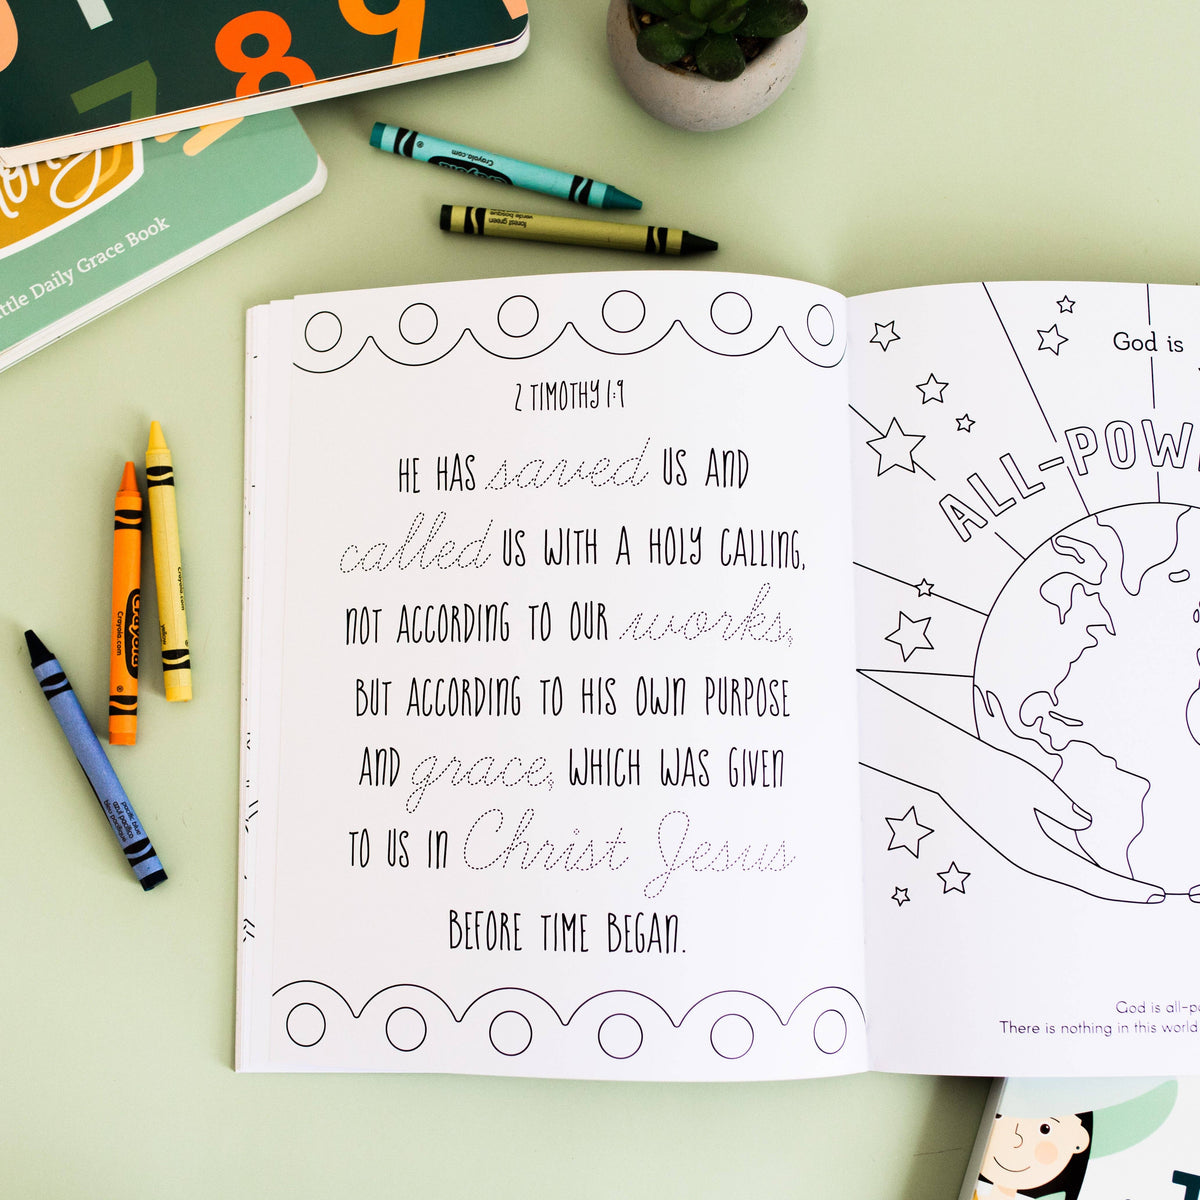 7 8 9
Little Daily Grace Book
Crayola.com
Crayola
forest green
verde bosque
2 TIMOTHY 1:9
HE HAS saved US AND
called US WITH A HOLY CALLING,
NOT ACCORDING TO OUR works,
BUT ACCORDING TO HIS OWN PURPOSE
AND grace, WHICH WAS GIVEN
TO US IN Christ Jesus
BEFORE TIME BEGAN.
God is
ALL-POW
God is all-po
There is nothing in this world
Crayola
Crayola.com
Crayola.com
yellow
pacific blue
azul pacífico
bleu pacifique